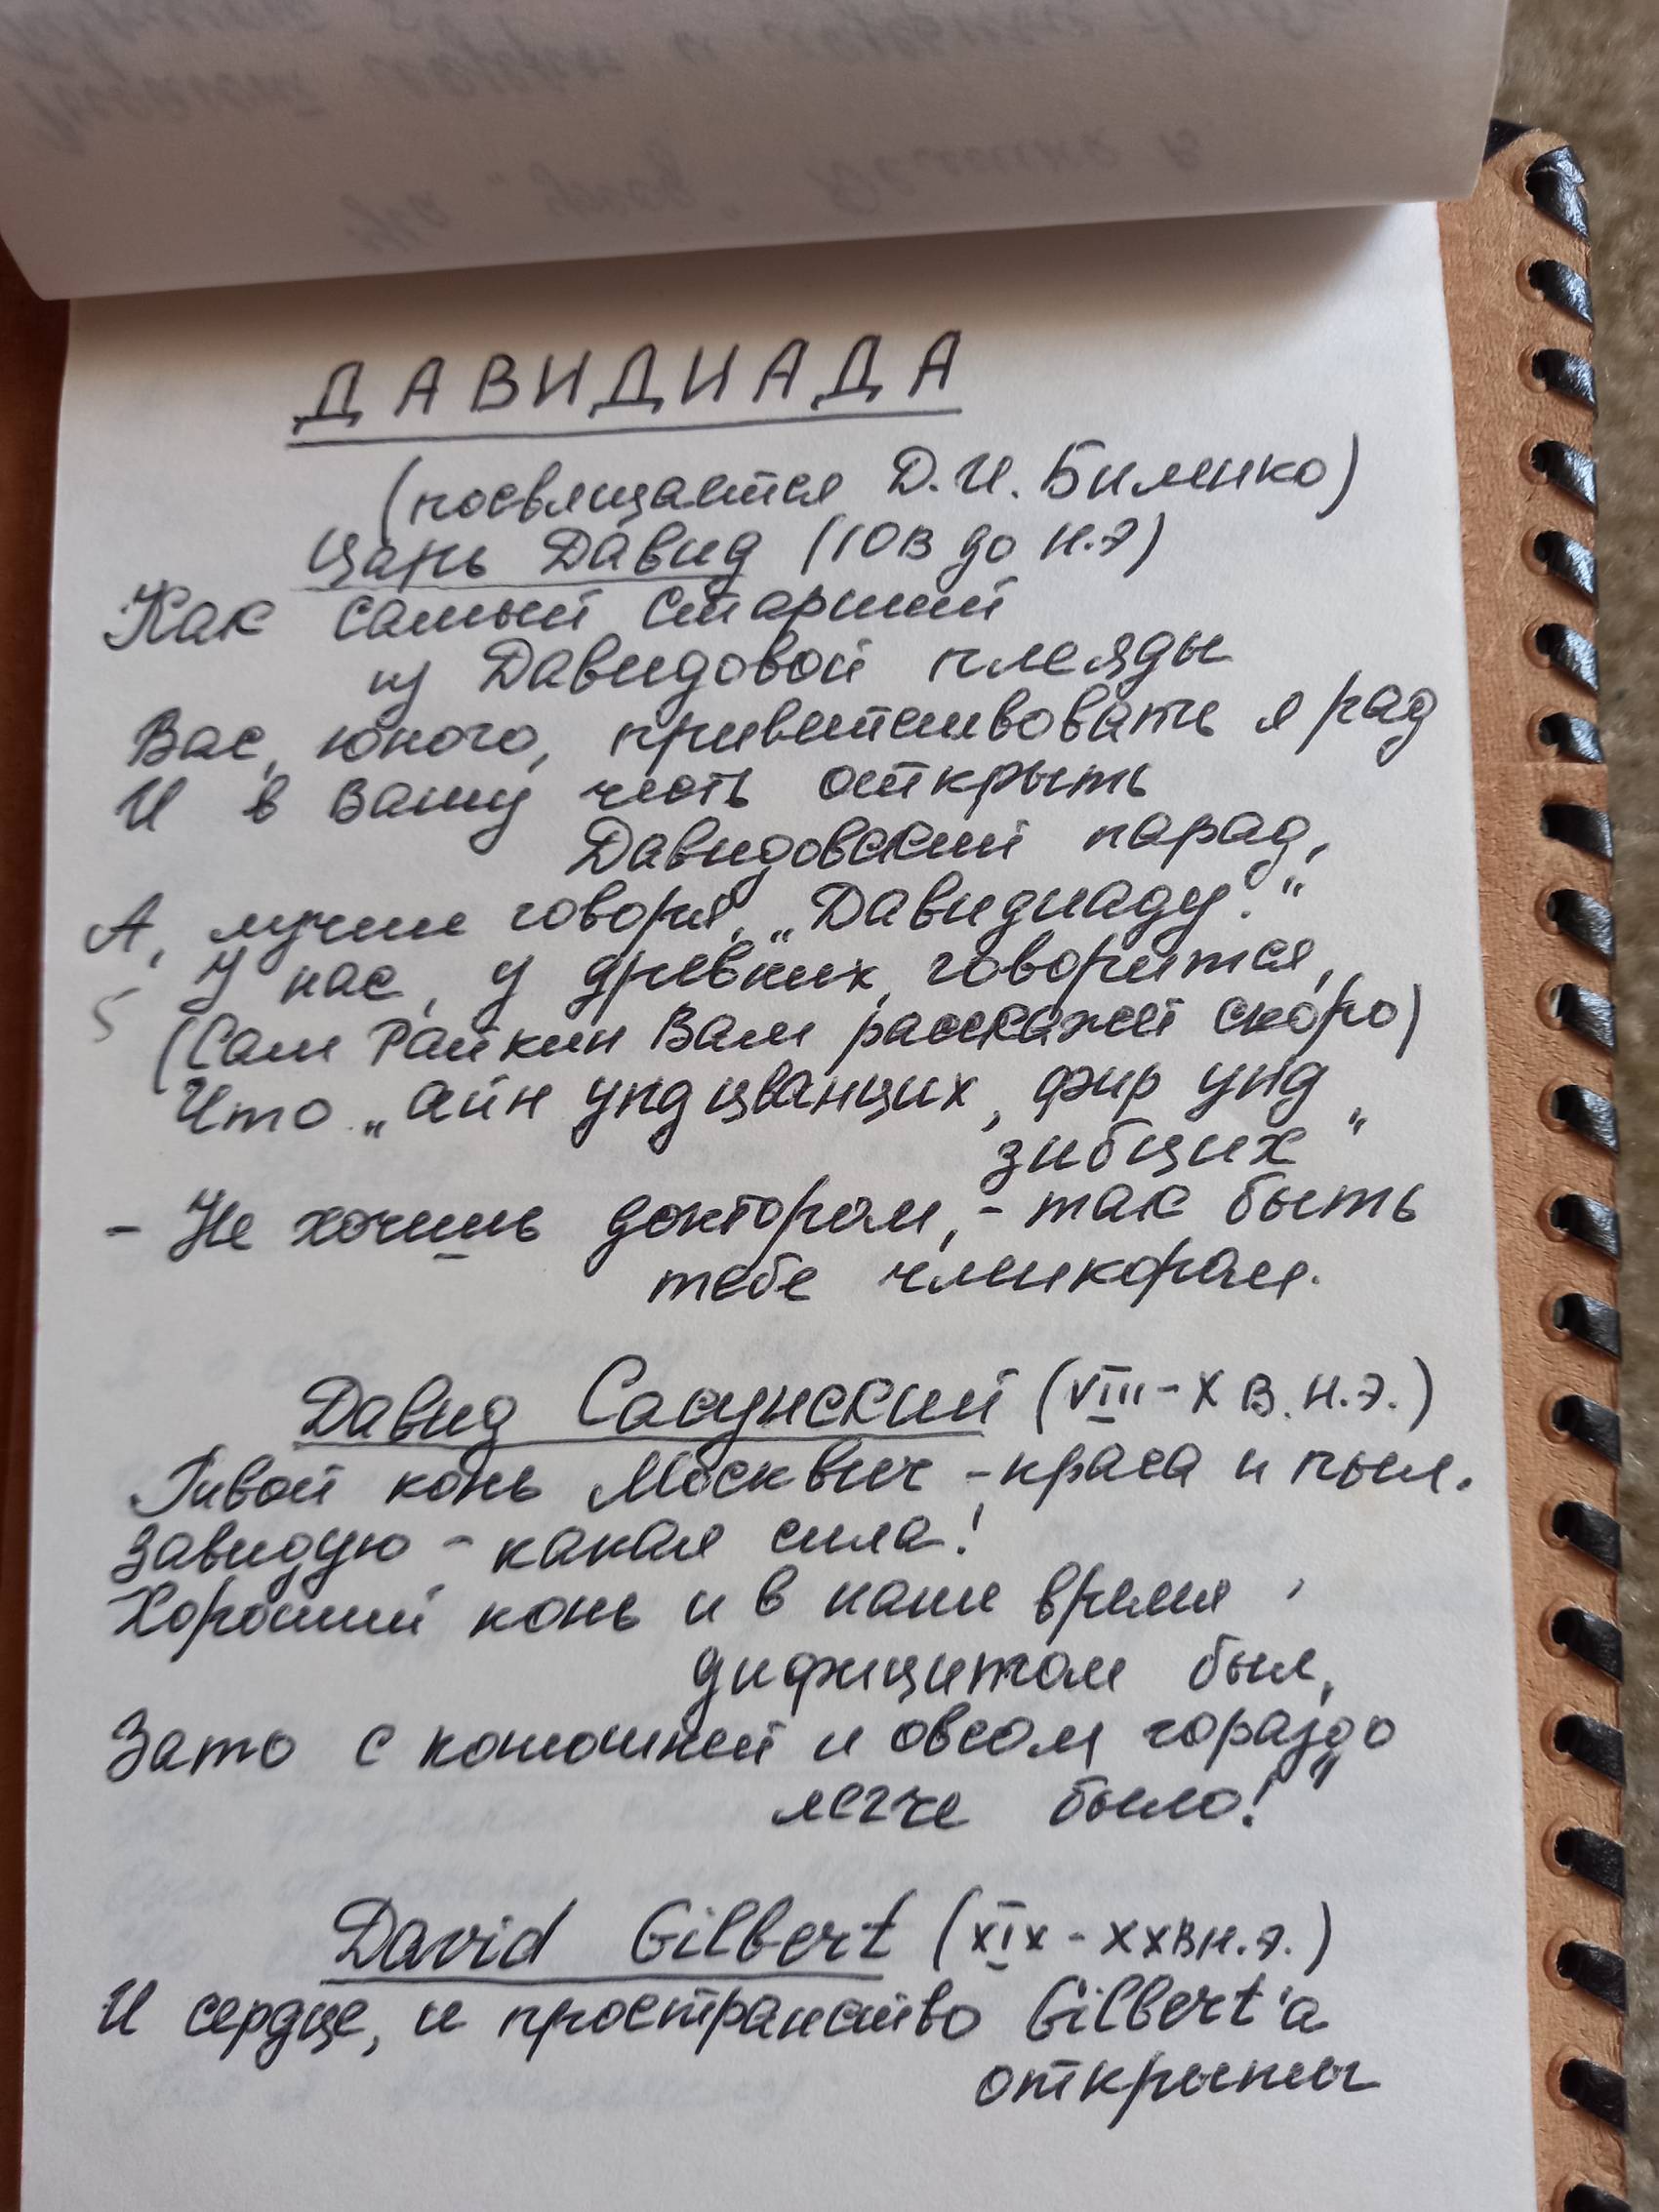 ДАВИДИАДА
(посвящается Д.И. Биленко)
Царь Давид (10в до н.э)
Как самый старший
из Давидовой плеяды
Вас, юного, приветствовать я рад
И в Вашу честь открыть
Давидовский парад,
А, лучше говоря, „Давидиаду."
У нас, у древних, говорится,
(Сам Райкин Вам расскажет скоро)
Что „айн унд цванцих, фир унд
зибцих"
- Не хочешь доктором, - так быть
тебе членкором.
Давид Сасунский (VIII-X в. н.э.)
Твой конь Москвич - краса и пыл.
Завидую - какая сила!
Хороший конь и в наше время
дифицитом был,
Зато с конюшней и овсом гораздо
легче было!"
David Gilbert (XIX - XXв н.э.)
И сердце, и пространство Gilbert'а
открыты